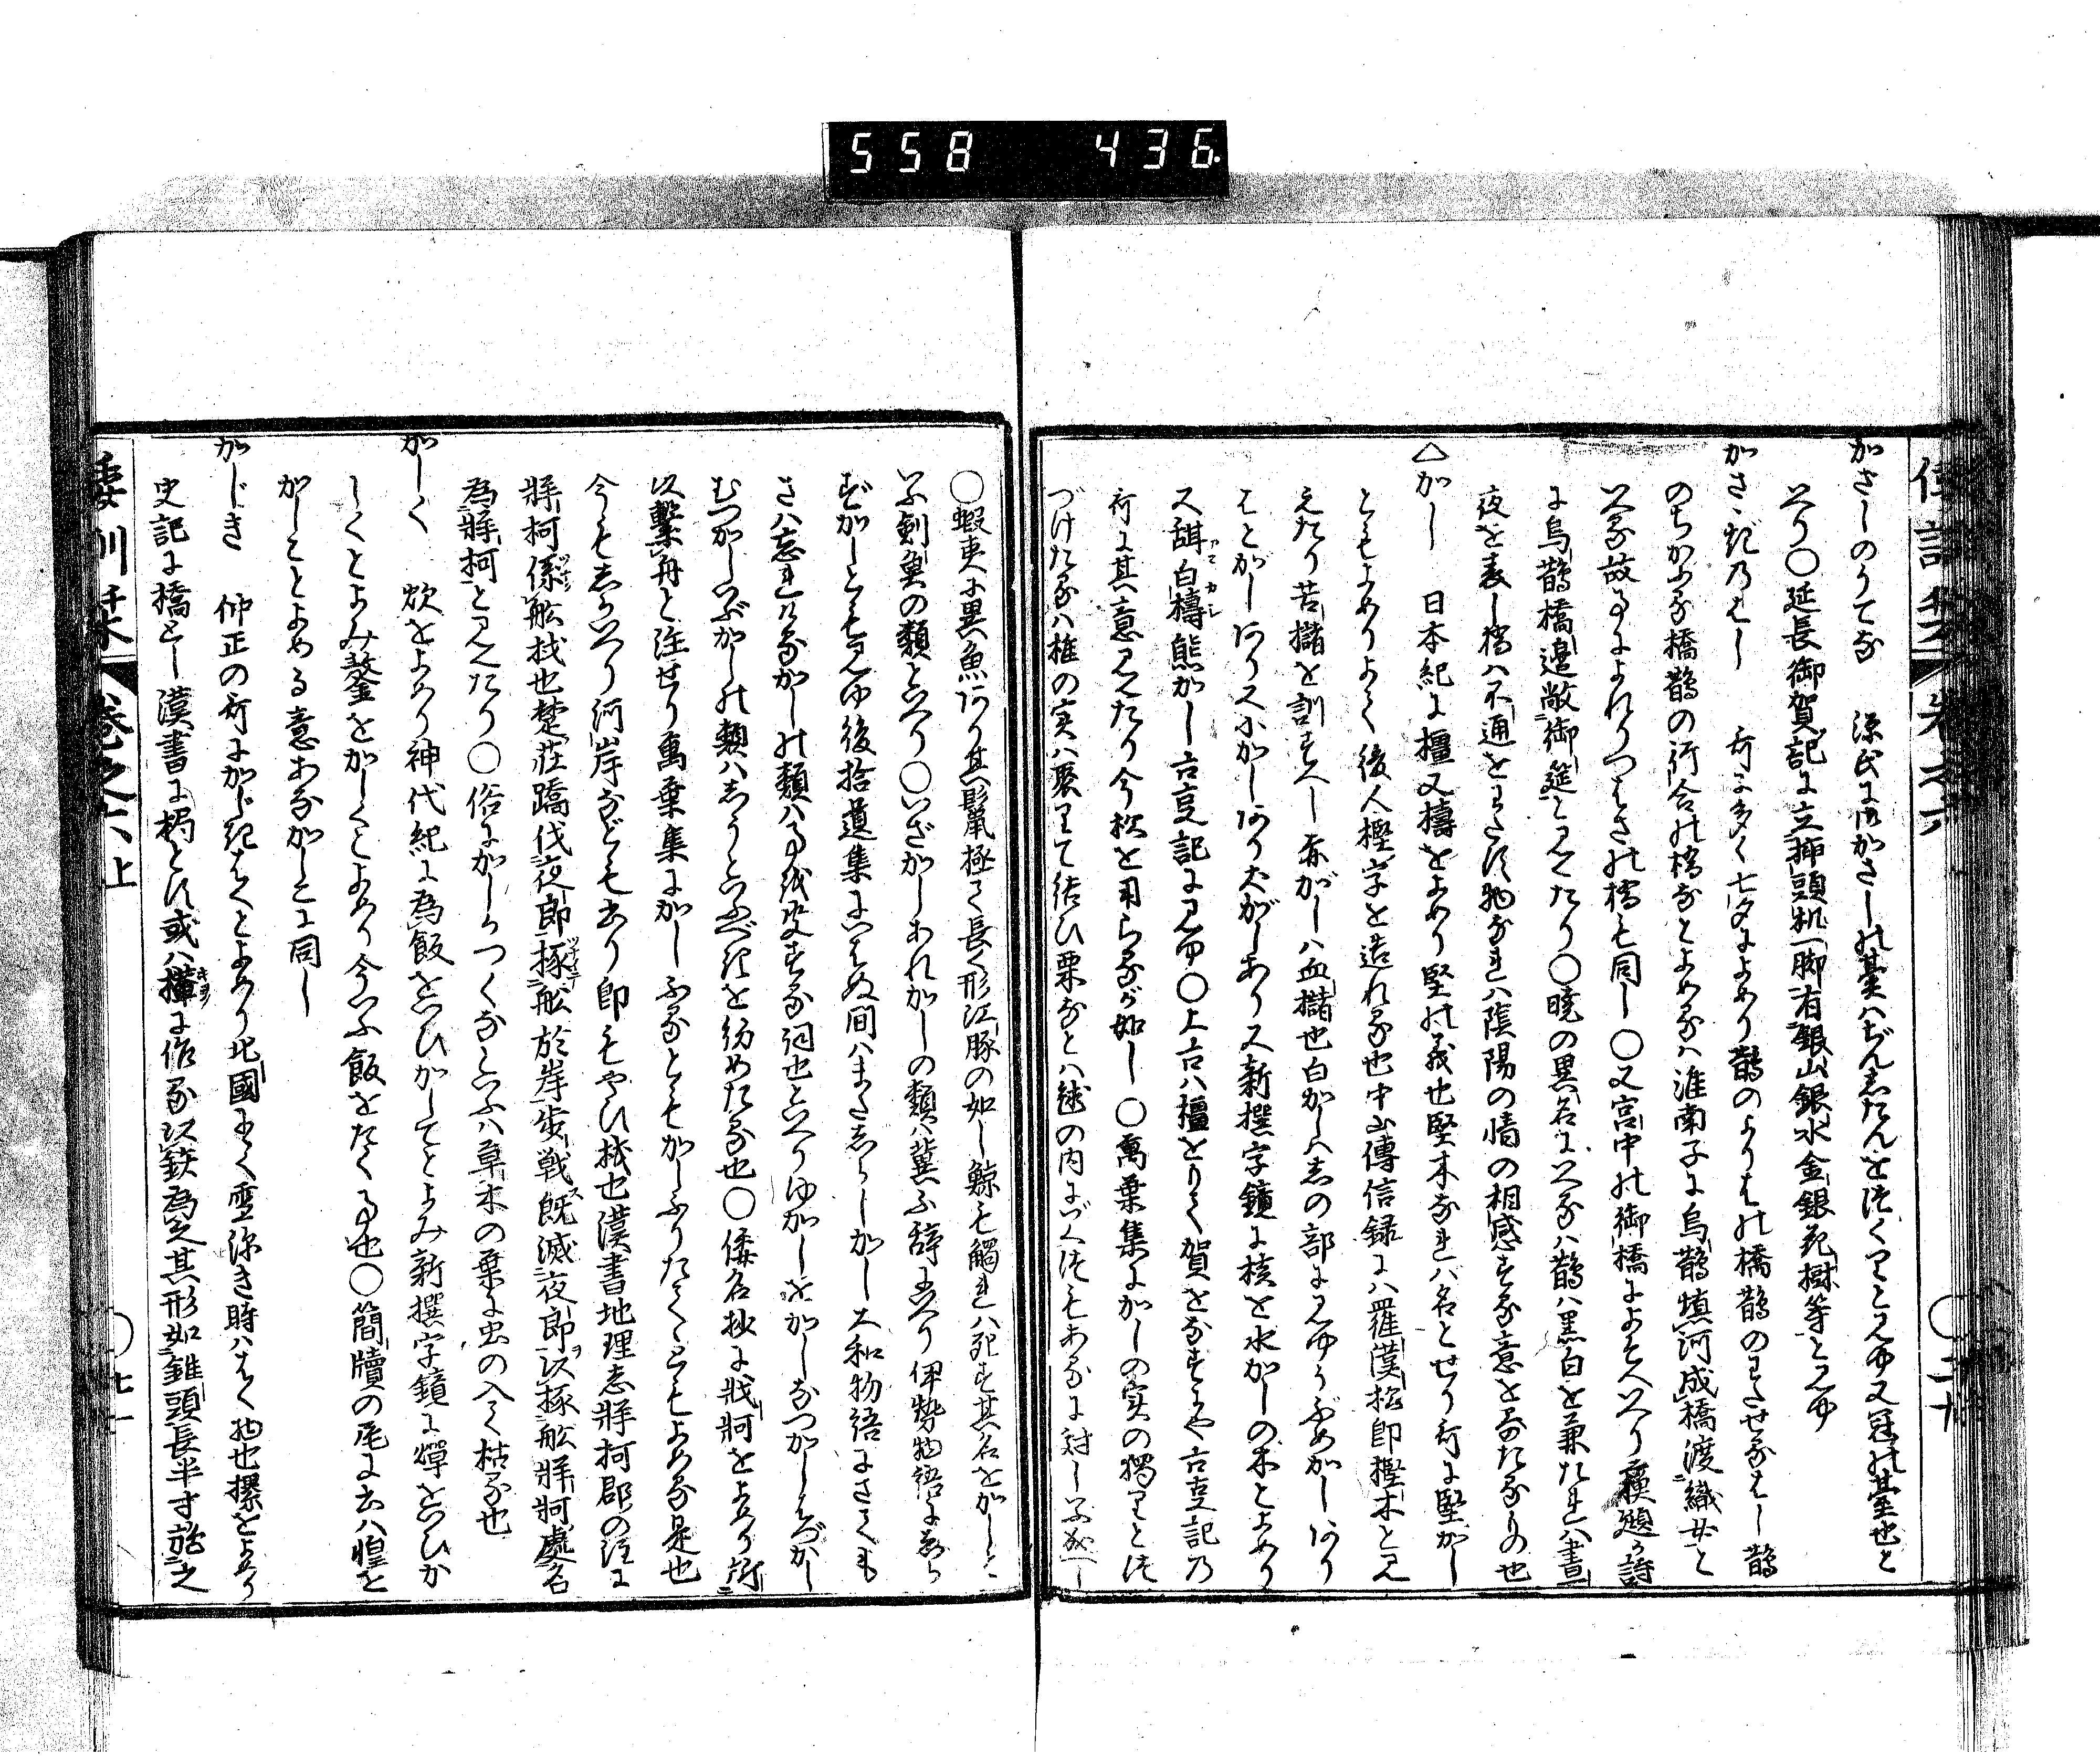 558 436
かさしのうてな 源氏に御かさしの臺ハぢんしたんをつくりと見ゆ又冠の基也と
いへり〇延長御賀記に立挿頭机一脚有銀山銀水金銀花樹等と見ゆ
かさゝぎのはし 哥に多く七夕によめり鵲のよりはの橋鵲のわたせるはし鵲
のちかふる橋鵲の行合の橋などよめるハ淮南子に烏鵲填河成橋渡織女と
いへる故事によれりつはさの橋も同し〇又宮中の御橋によそへいへり詩
に烏鵲橋邊敞御筵と見えたり〇暁の異名にいへるハ鵲ハ黒白を兼たれハ晝
夜を表し橋ハ不通をわたす物なれハ陰陽の情の相感する意をなたるもの也
△かし 日本紀に橿又檮をよめり堅の義也堅木なれハ名とせり哥に堅かし
ともよめりよて後人樫字を造れる也中山傳信録にハ羅漢松即樫木と見
えたり苦櫧を訓すへし赤がしハ血櫧也白かしハしの部に見ゆうばめがしあり
はとがしあり又小かしあり大がしあり又新撰字鏡に核を水かしの木とよめり
又甜白檮熊がし古事記に見ゆ〇上古ハ橿をとりて賀をなすにや古事記乃
哥に其意見えたり今松を用らるが如し〇萬葉集にかしの実の獨りとつ
づけたるハ椎の実ハ聚りて結ひ栗なとハ毬の内に
〇蝦夷に異魚あり其鬣極て長く形江豚の如し鯨も觸れハ死す其名をかしと
いふ剣魚の類といへり〇いざかしあれかしの類ハ冀ふ辞といへり伊勢物語に
ぞかしとも見ゆ後拾遺集にいはぬ間ハまたしらしかし大和物語にさても
さハ忘れけるかしの類ハ事を決定する詞也といへりゆかしをかしなつかしはづかし
むつかしいぶかしの類ハしうといふべきを約めたる也〇倭名抄に牂牁をよめり所
以繋舟と注せり萬葉集にかしふるともかしふりたてゝともよめる是也
今もしかいへり河岸などもあり即もやひ杙也漢書地理志牂柯郡の注に
牂柯係舩杙也楚莊蹻伐夜郎椓舩於岸歩戦既滅夜郎以椓舩牂牁處名
為牂柯と見えたり〇俗にかしらつくなといふハ草木の葉に虫の入て枯る也
かしく 炊をよめり神代紀に為飯をいひかしてとよみ新撰字鏡に燀をいひか
しくとよみ鏊をかしくとよめり今いふ飯をたく事也〇簡牘の尾に云ハ惶を
かしこことよめる意あなかしこに同し
かじき 仲正の哥にかじきはくとよめり北國にて雪深き時ハはく物也樏をよめり
史記に橋とし漢書に梮とす或ハ檋に作る以鉄為之其形如錐頭長半寸施之
倭訓栞 巻之六上